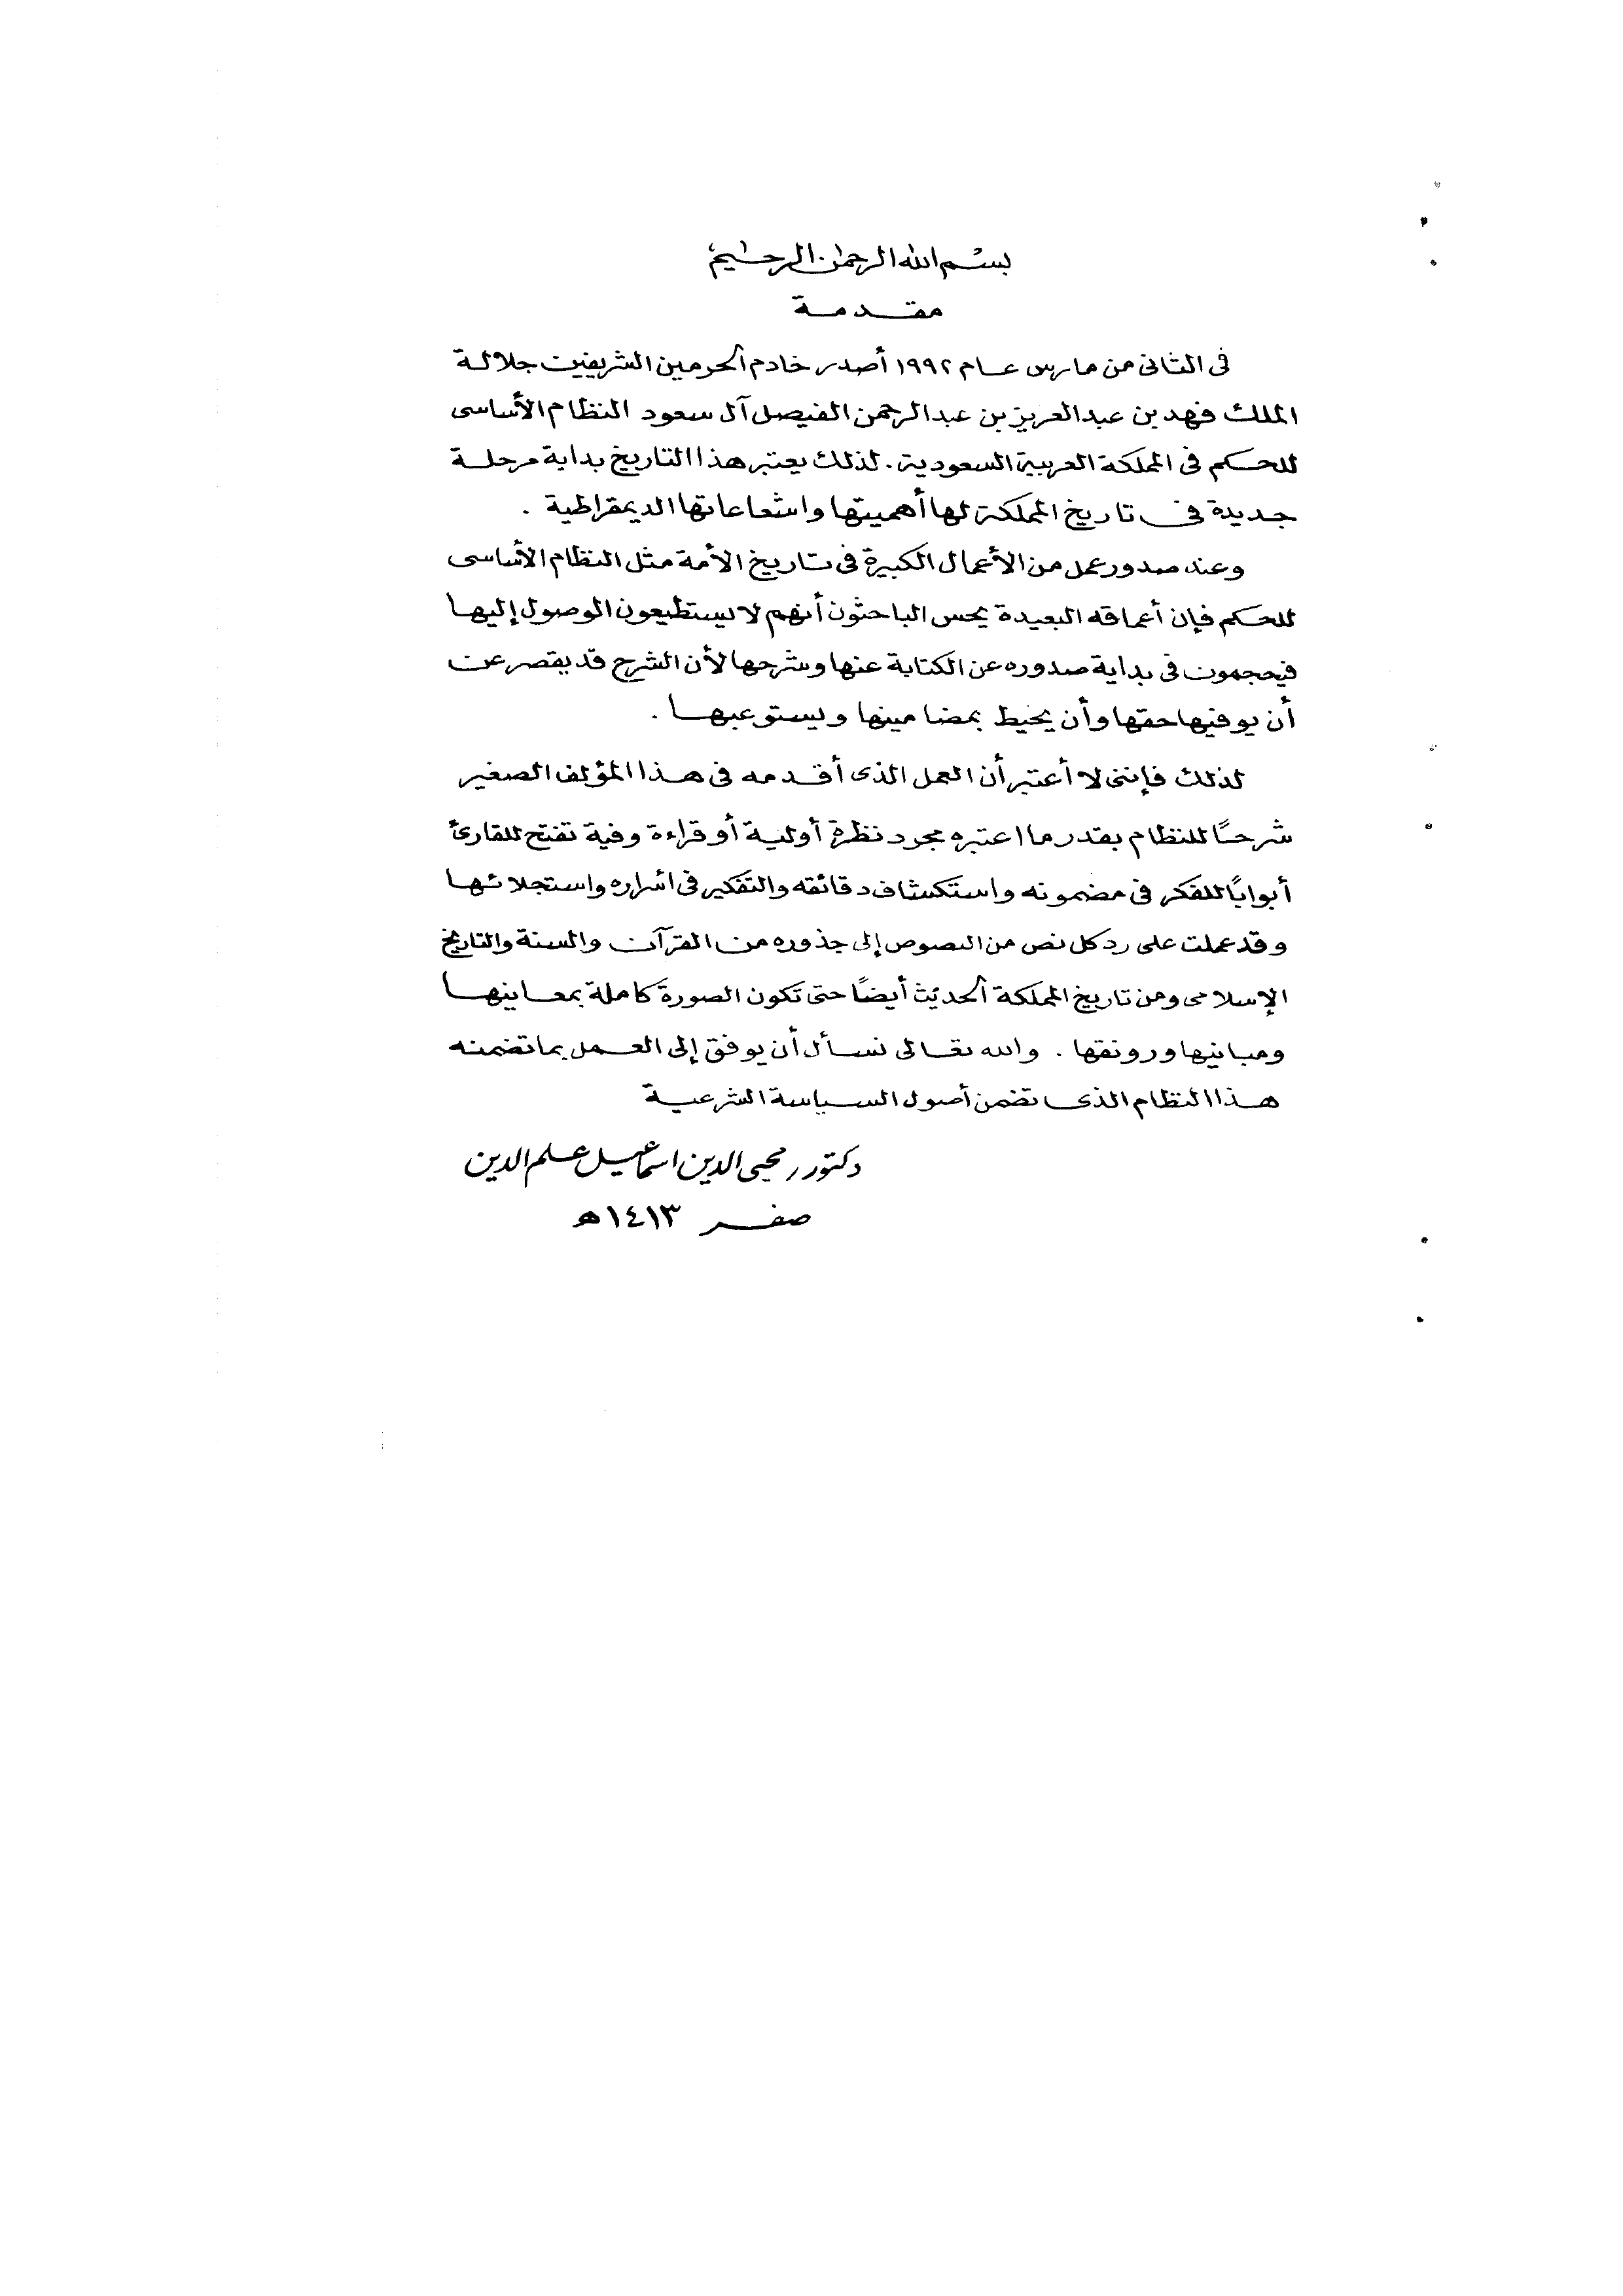 بسم الله الرحمن الرحيم
مقدمة
فى الثانى من مارس عام ١٩٩٢ أصدر خادم الحرمين الشريفين جلالة
الملك فهد بن عبد العزيز بن عبد الرحمن الفيصل آل سعود النظام الأساسى
للحكم فى المملكة العربية السعودية . لذلك يعتبر هذا التاريخ بداية مرحلة
جديدة فى تاريخ المملكة لها أهميتها واشعاعاتها الديمقراطية .
وعند صدور عمل من الأعمال الكبيرة فى تاريخ الأمة مثل النظام الأساسى
للحكم فإن أعماقه البعيدة يحس الباحثون أنهم لا يستطيعون الوصول إليها
فيحجمون فى بداية صدوره عن الكتابة عنها وشرحها لأن الشرح قد يقصر عن
أن يوفيها حقها وأن يحيط بمضامينها ويستوعبها .
لذلك فإننى لا أعتبر أن العمل الذى أقدمه فى هذا المؤلف الصغير
شرحًا للنظام بقدر ما اعتبره مجرد نظرة أولية أو قراءة وفية تفتح للقارئ
أبوابًا للفكر فى مضمونه واستكشاف دقائقه والتفكير فى اسراره واستجلائها
وقد عملت على رد كل نص من النصوص إلى جذوره من القرآن والسنة والتاريخ
الإسلامى ومن تاريخ المملكة الحديث أيضًا حتى تكون الصورة كاملة بمعاينها
ومبانيها ورونقها . والله تعالى نسأل أن يوفق إلى العمل بما تضمنه
هذا النظام الذى تضمن أصول السياسة الشرعية
دكتور محيى الدين اسماعيل علم الدين
صفر ١٤١٣ه